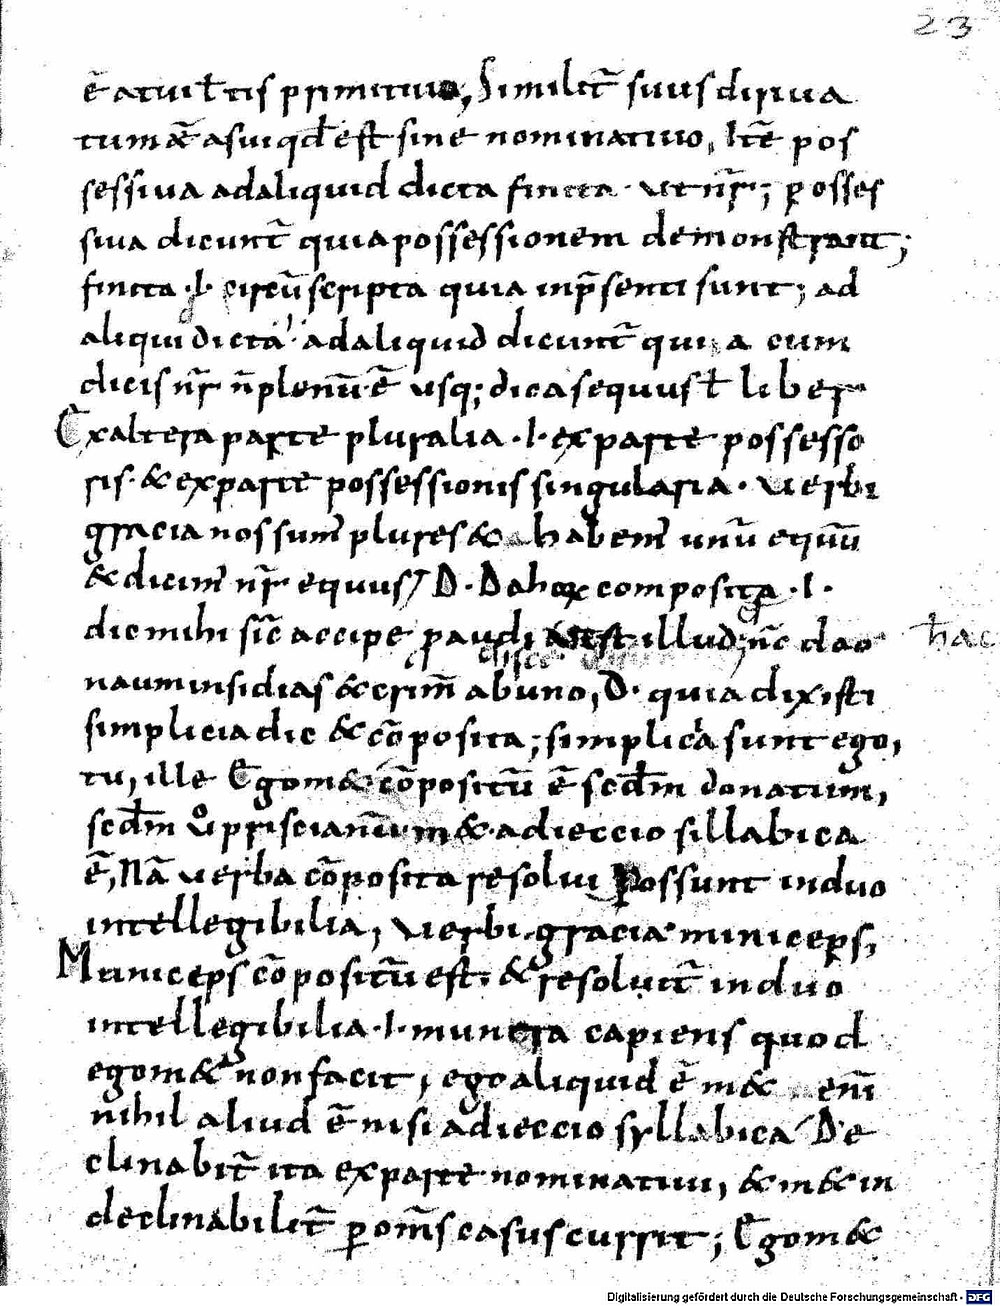 23
ē atui ł tis primitiuo, Similit̄ suus diriua
tum & asui qđ est sine nominatiuo, Itē pos
sessiua adaliquid dicta finita · ut nr̄; possesſ
siua dicunt̄ quia possessionem demonstrant;
finita ·l· circūscripta quia inp̄senti sunt; ad
aliqui dicta · adaliquid dicunt̄ quia cum
dicis nr̄ n̄ plenū ē usq; dicas equus ł liber
Ex altera parte pluralia ·l· ex parte possesso
ris · & ex parte possessionis singularia · uerbi
gracia nos sum̄ plures & habem̄ unū equū
& dicim̄ nr̄ equus, D · Da horꝝ composita ·l·
dic mihi sic̄ accipe illud nc̄ dao
hac
naum insidias & crim̄ ab uno, D · quia dixisti
simplicia dic & cōposita; simplicia sunt ego,
tu, ille Egom& cōpositū ē scđm donatum,
scđm ů priscianū m& adieccio sillabica
ē, Nā uerba cōposita resolui possunt induo
intellegibilia, uerbi gracia municeps,
Municeps cōpositū est · & resoluit̄ induo
intellegibilia ·l· munera capiens quod
egom& non facit, ego aliquid ē m& eni
nihil aliud ē nisi adieccio syllabica De
clinabit̄ ita ex parte nominatiui, & m& in
declinabilit̄ ꝑ om̄s casus currit; Egom&
Digitalisierung gefördert durch die Deutsche Forschungsgemeinschaft - DFG